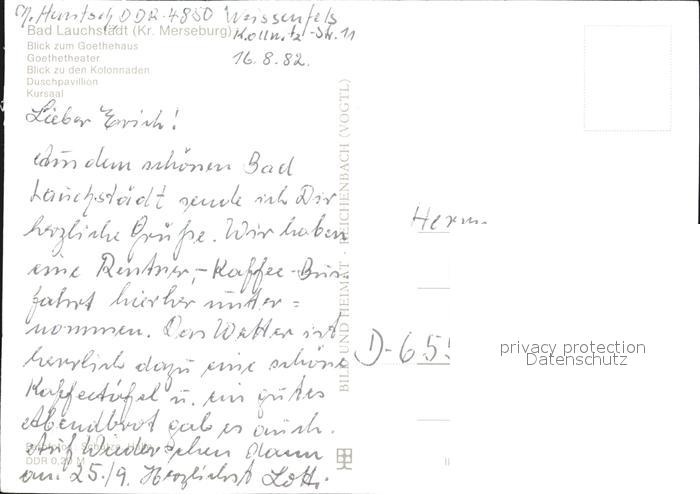 DDR-4850 Weissenfels
Bad Lauchstädt (Kr. Merseburg)
Kollwitz-Str. 11
16.8.82.
Blick zum Goethehaus
Goethetheater
Blick zu den Kolonnaden
Duschpavillion
Kursaal
Lieber Erich!
Aus dem schönen Bad
Lauchstädt sende ich Dir
herzliche Grüße. Wir haben
eine Rentner,-Kaffee-Bus
fahrt hierher unter=
nommen. Das Wetter ist
herrlich dazu eine schöne
Kaffeetafel u. ein gutes
Abendbrot gab es auch.
Auf Wiedersehen dann
am 25./9. Herzlichst Lotti.
DDR 0,20 M
BILD UND HEIMAT · REICHENBACH (VOGTL)
Herrn
D-655
privacy protection
Datenschutz